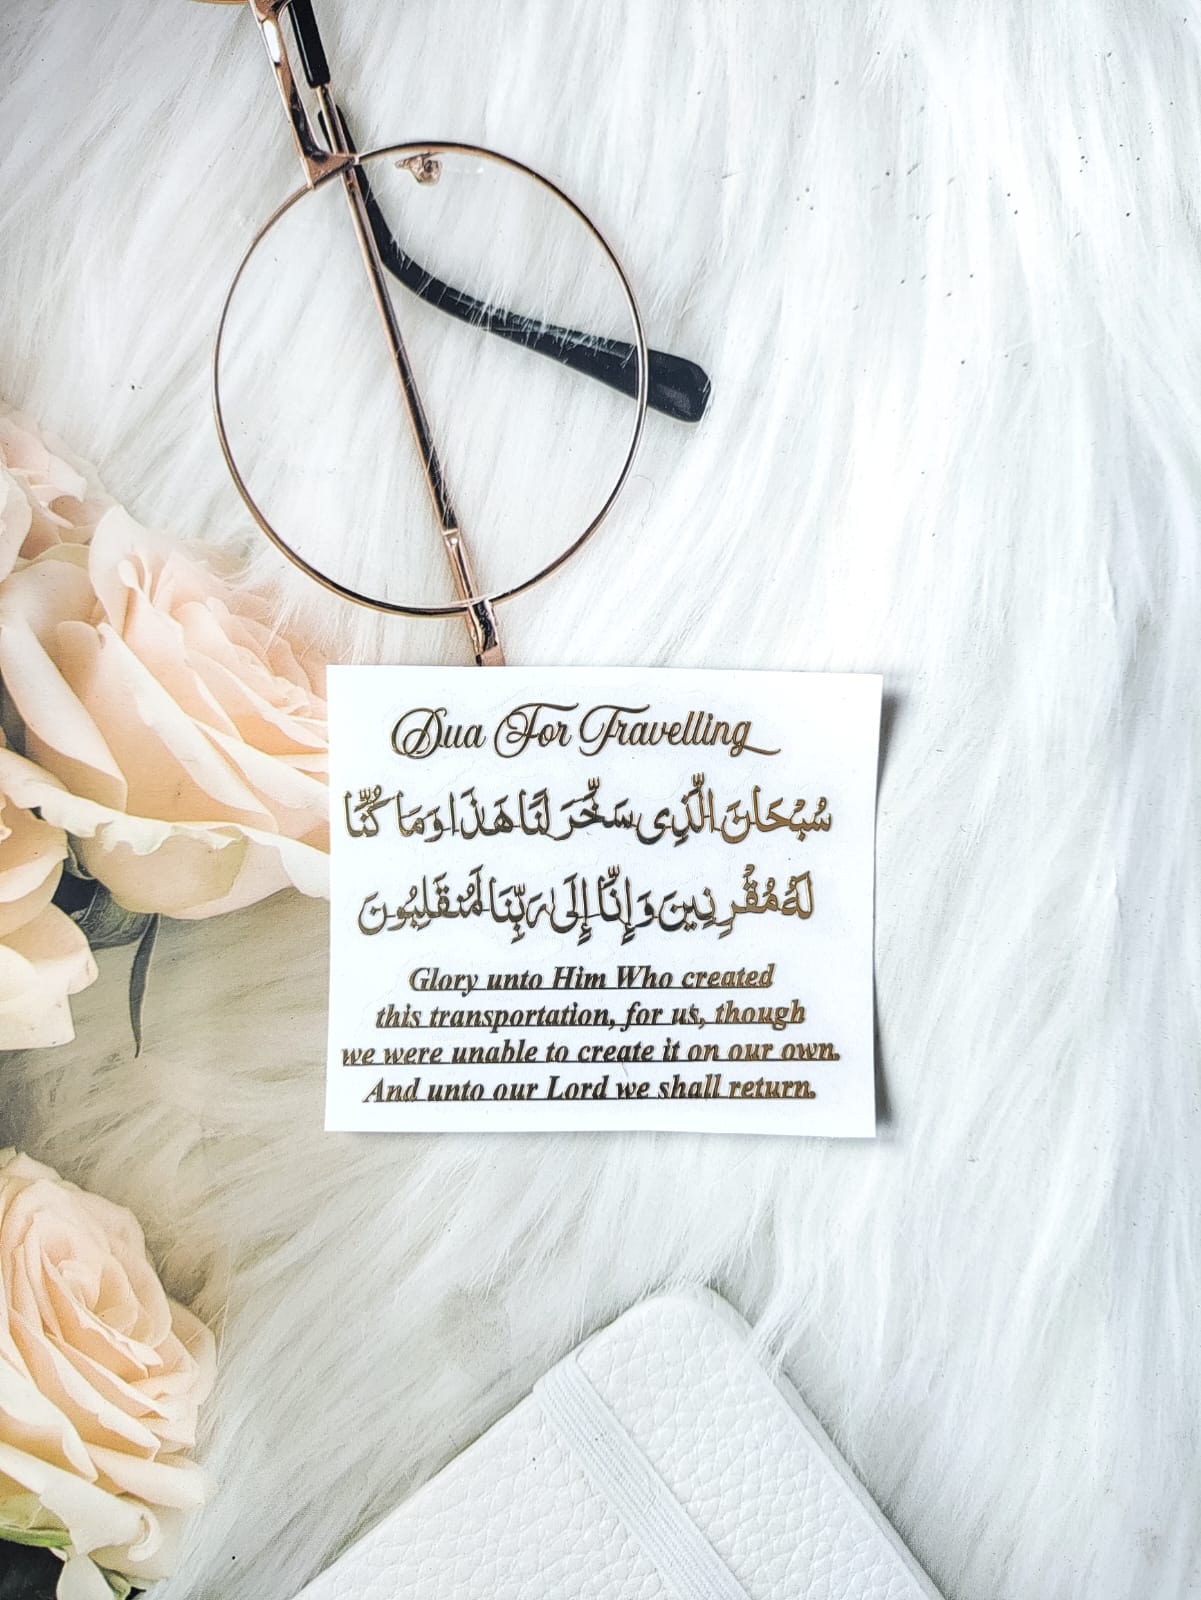 Dua For Travelling
سُبْحَانَ الَّذِى سَخَّرَ لَنَا هَذَا وَمَا كُنَّا
لَهُ مُقْرِنِينَ وَإِنَّا إِلَى رَبِّنَا لَمُنقَلِبُونَ
Glory unto Him Who created
this transportation, for us, though
we were unable to create it on our own.
And unto our Lord we shall return.